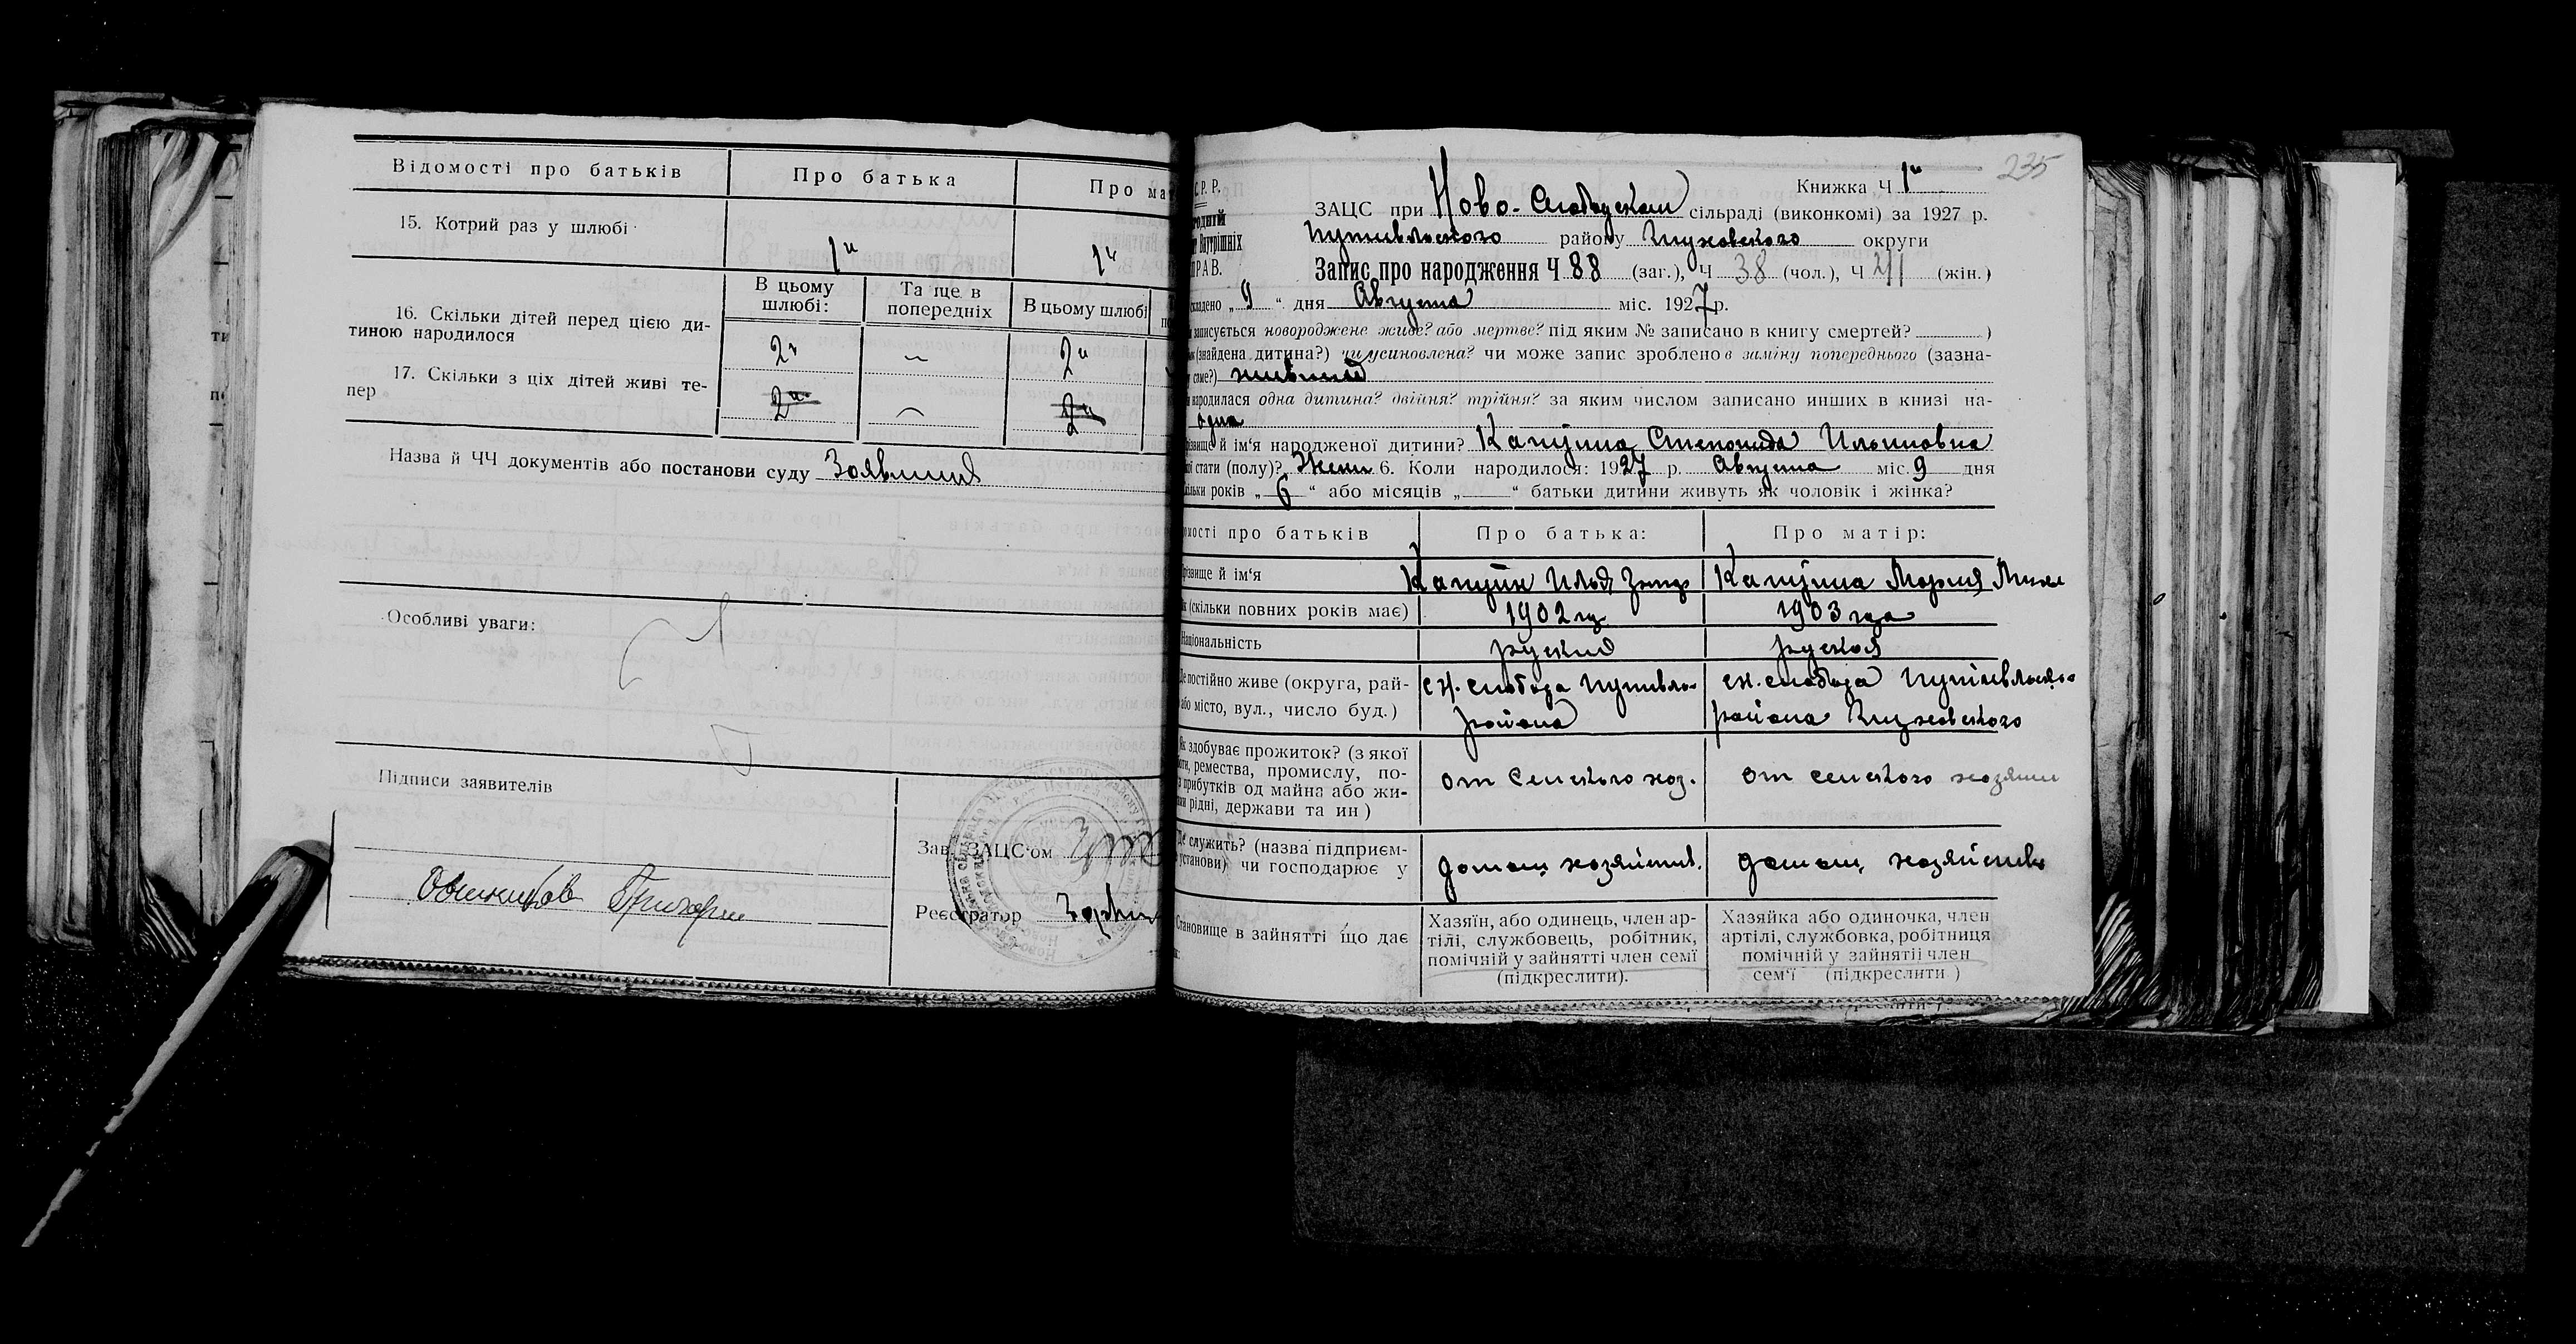 Відомості про батьків
Про батька
Про ма
15. Котрий раз у шлюбі
1й
1й
В цьому шлюбі:
Та ще в попередніх
В цьому шлюбі
16. Скільки дітей перед цією ди-
тиною народилося
2й
—
2й
17. Скільки з ціх дітей живі те-
пер
2й
—
2й
2
Назва й ЧЧ документів або постанови суду Заявления
Особливі уваги:
Підписи заявителів
Григори
Зав. ЗАЦС'ом
Реєстратор
235
С. Р. Р.
Книжка Ч 1й
ЗАЦС при Ново-Слободском сільраді (виконкомі) за 1927 р.
Внутрішніх
Путивльского району Глуховского округи
ПРАВ.
Запис про народження Ч 88 (заг.), Ч 38 (чол.), Ч 41 (жін.)
складено „9“ дня Августа міс. 1927 р.
записується новороджене живе? або мертве? під яким № записано в книгу смертей? )
(знайдена дитина?) чи усиновлена? чи може запис зроблено в заміну попереднього (зазна-
саме?) живый
народилася одна дитина? двійня? трійня? за яким числом записано инших в книзі на-
одна
й ім'я народженої дитини? Капуіна Степонида Ильиновна
стати (полу)? Жен 6. Коли народилося: 1927 р. Августа міс. 9 дня
років „6“ або місяців „ “ батьки дитини живуть як чоловік і жінка?
про батьків
Про батька:
Про матір:
й ім'я
Илья
Мария
(скільки повних років має)
1902 г
1903 года
Національність
руский
руская
Де постійно живе (округа, рай-
або місто, вул., число буд.)
с Н. слобода Путивль-
района
с Н. слобода Путивльско-
района Глуховского
Як здобуває прожиток? (з якої
ремества, промислу, по-
прибутків од майна або жи-
рідні, держави та ин)
от селского хоз.
от селского хозяи
Де служить? (назва підприєм-
установи) чи господарює у
домаш хозяйств.
домаш хозяйств
Становище в зайнятті що дає
Хазяїн, або одинець, член ар-
тілі, службовець, робітник,
помічній у зайнятті член семї
(підкреслити).
Хазяйка або одиночка, член
артілі, службовка, робітниця
помічній у зайнятіі член
сем'ї (підкреслити )